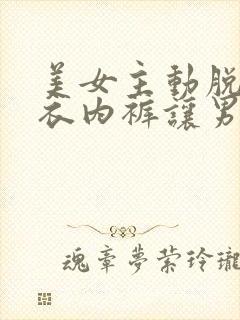 美女主動脱
衣内裤讓男
魂章夢萦玲瓏